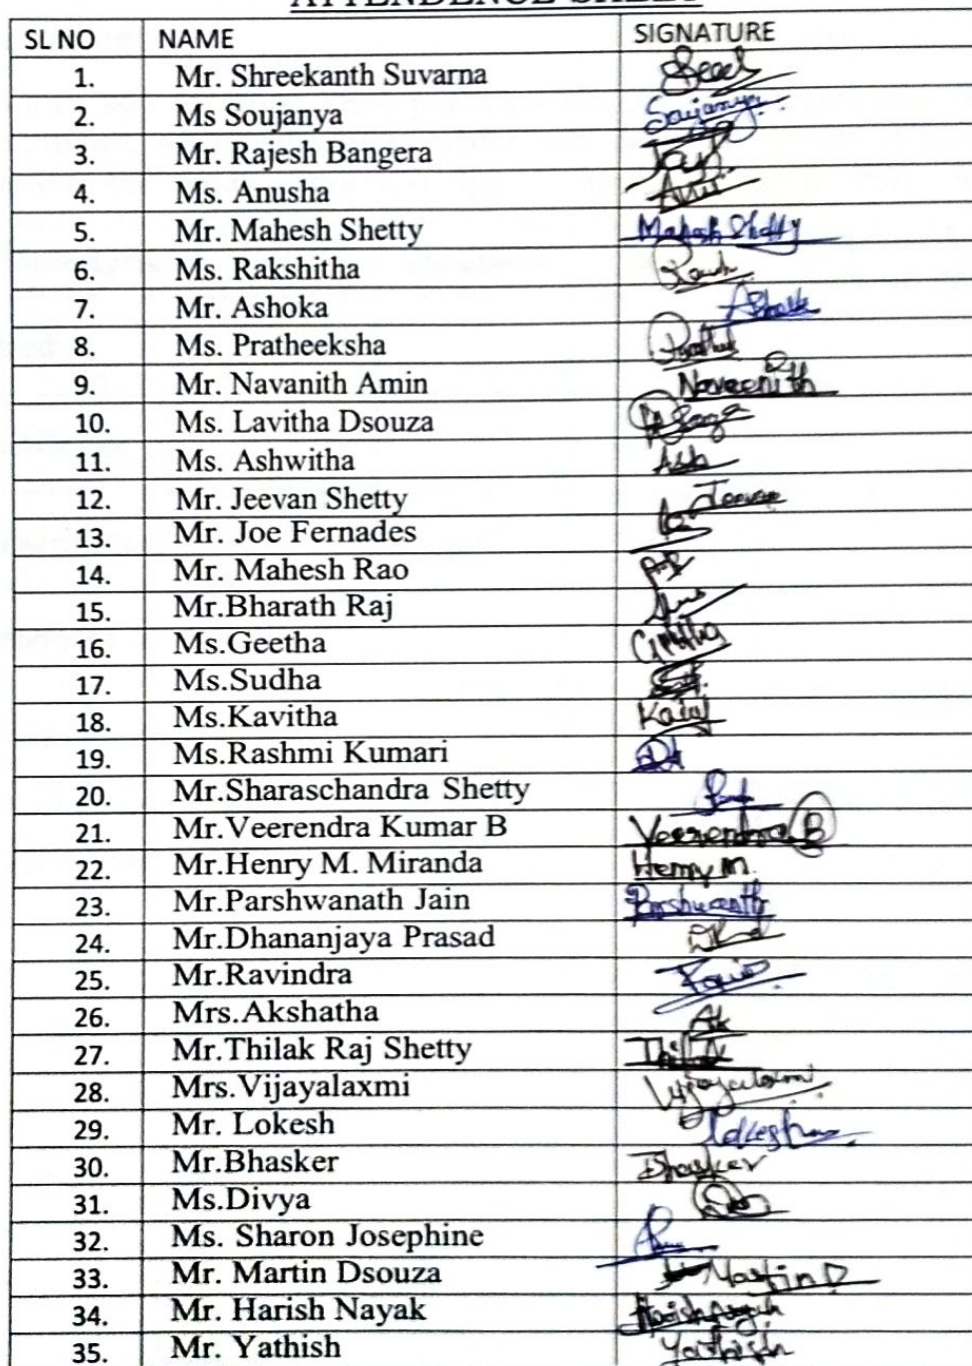 ATTENDENCE SHEET
SL NO NAME SIGNATURE
1. Mr. Shreekanth Suvarna
2. Ms Soujanya Soujanya
3. Mr. Rajesh Bangera
4. Ms. Anusha
5. Mr. Mahesh Shetty Mahesh Shetty
6. Ms. Rakshitha
7. Mr. Ashoka
8. Ms. Pratheeksha
9. Mr. Navanith Amin Naveenith
10. Ms. Lavitha Dsouza
11. Ms. Ashwitha
12. Mr. Jeevan Shetty Jeevan
13. Mr. Joe Fernades
14. Mr. Mahesh Rao
15. Mr.Bharath Raj
16. Ms.Geetha
17. Ms.Sudha
18. Ms.Kavitha
19. Ms.Rashmi Kumari
20. Mr.Sharaschandra Shetty
21. Mr.Veerendra Kumar B Veerendra B
22. Mr.Henry M. Miranda Henry M.
23. Mr.Parshwanath Jain
24. Mr.Dhananjaya Prasad
25. Mr.Ravindra
26. Mrs.Akshatha Ak
27. Mr.Thilak Raj Shetty
28. Mrs.Vijayalaxmi Vijayalaxmi
29. Mr. Lokesh
30. Mr.Bhasker Bhasker
31. Ms.Divya
32. Ms. Sharon Josephine
33. Mr. Martin Dsouza Martin D
34. Mr. Harish Nayak Harish Nayak
35. Mr. Yathish Yathish